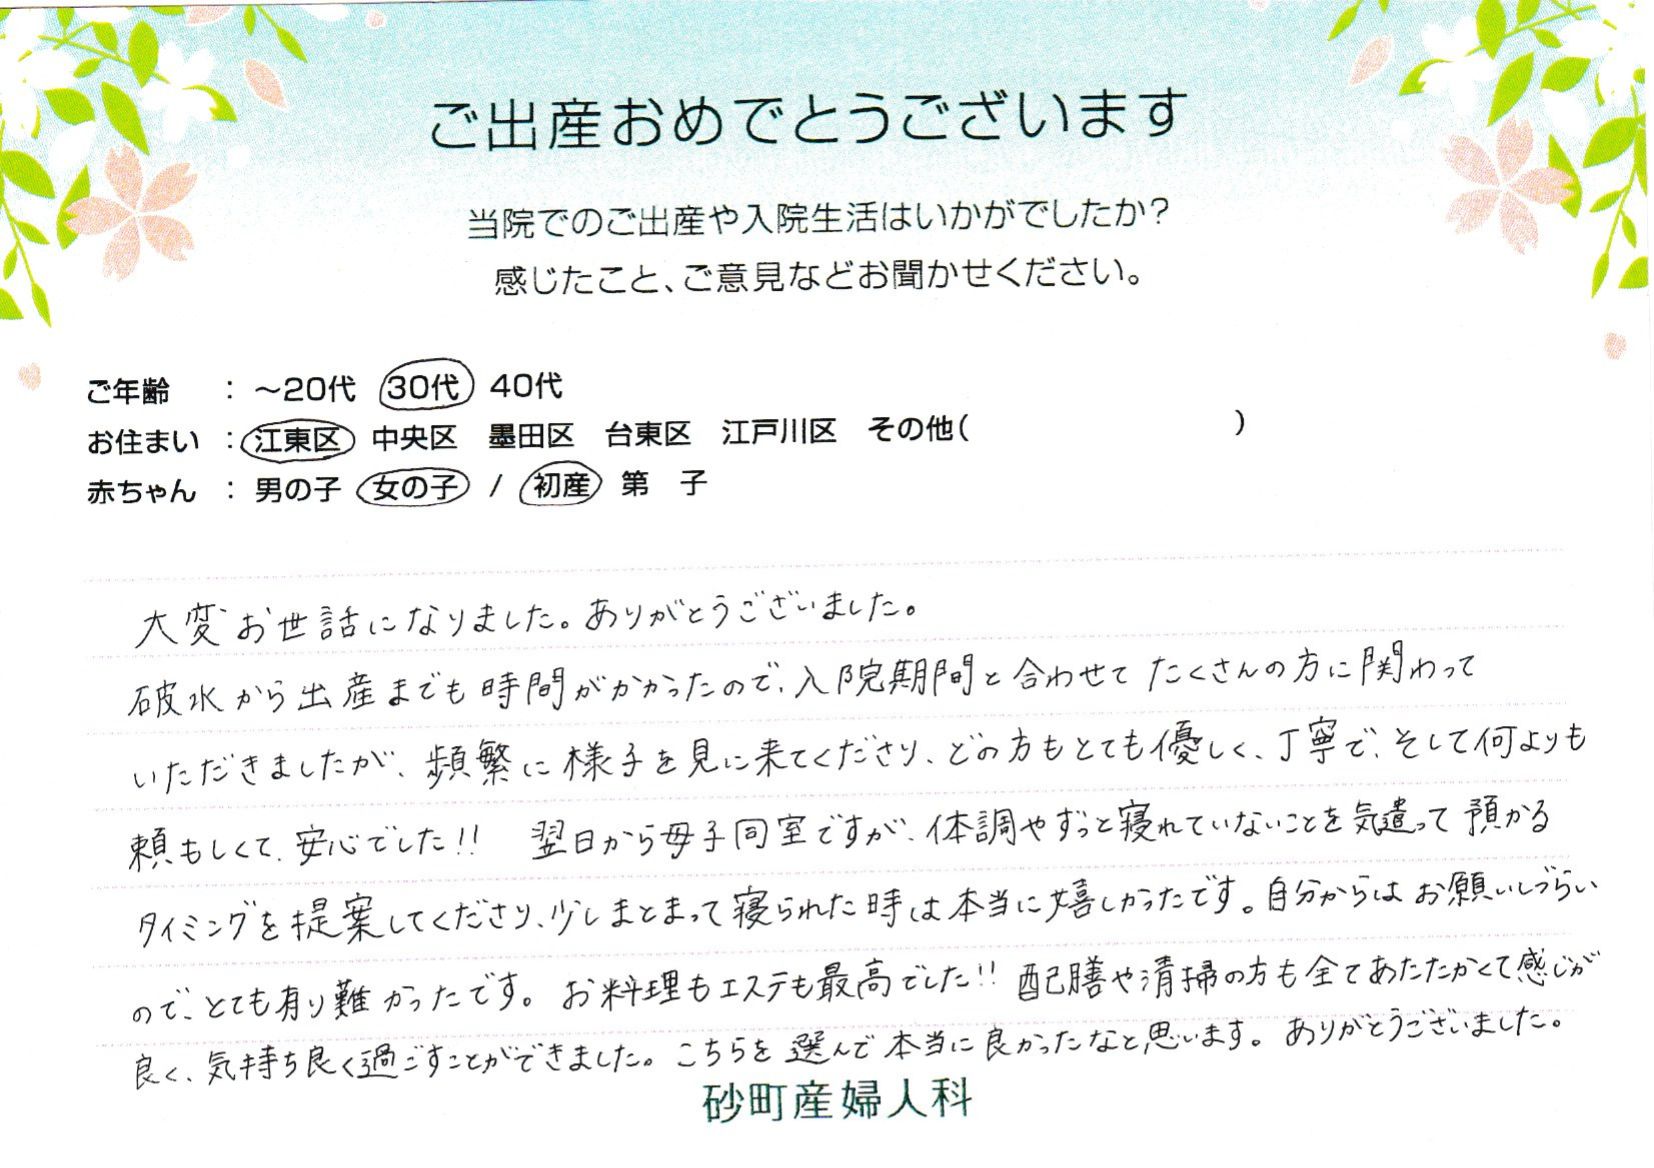 ご出産おめでとうございます
当院でのご出産や入院生活はいかがでしたか?
感じたこと、ご意見などお聞かせください。
ご年齢 : ~20代 30代 40代
お住まい : 江東区 中央区 墨田区 台東区 江戸川区 その他( )
赤ちゃん : 男の子 女の子 / 初産 第 子
大変お世話になりました。ありがとうございました。
破水から出産までも時間がかかったので、入院期間と合わせてたくさんの方に関わって
いただきましたが、頻繁に様子を見に来てくださり、どの方もとても優しく、丁寧で、そして何よりも
頼もしくて、安心でした!! 翌日から母子同室ですが、体調やずっと寝れていないことを気遣って預かる
タイミングを提案してくださり、少しまとまって寝られた時は本当に嬉しかったです。自分からはお願いしづらい
ので、とても有り難かったです。お料理もエステも最高でした!! 配膳や清掃の方も全てあたたかくて感じが
良く、気持ち良く過ごすことができました。こちらを選んで本当に良かったなと思います。ありがとうございました。
砂町産婦人科